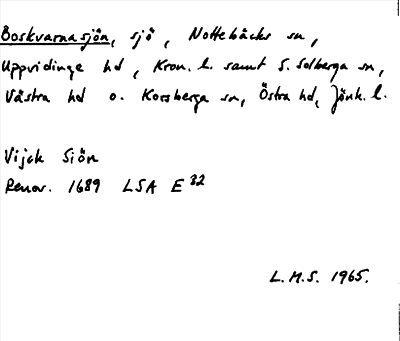 Boskvarnasjön, sjö, Nottebäcks sn,
Uppvidinge hd, Kron. l. samt S. Solberga sn,
Västra hd o. Korsberga sn, Östra hd, Jönk. l.
Vijck Siön
Renov. 1689 LSA E 32
L.M.S. 1965.